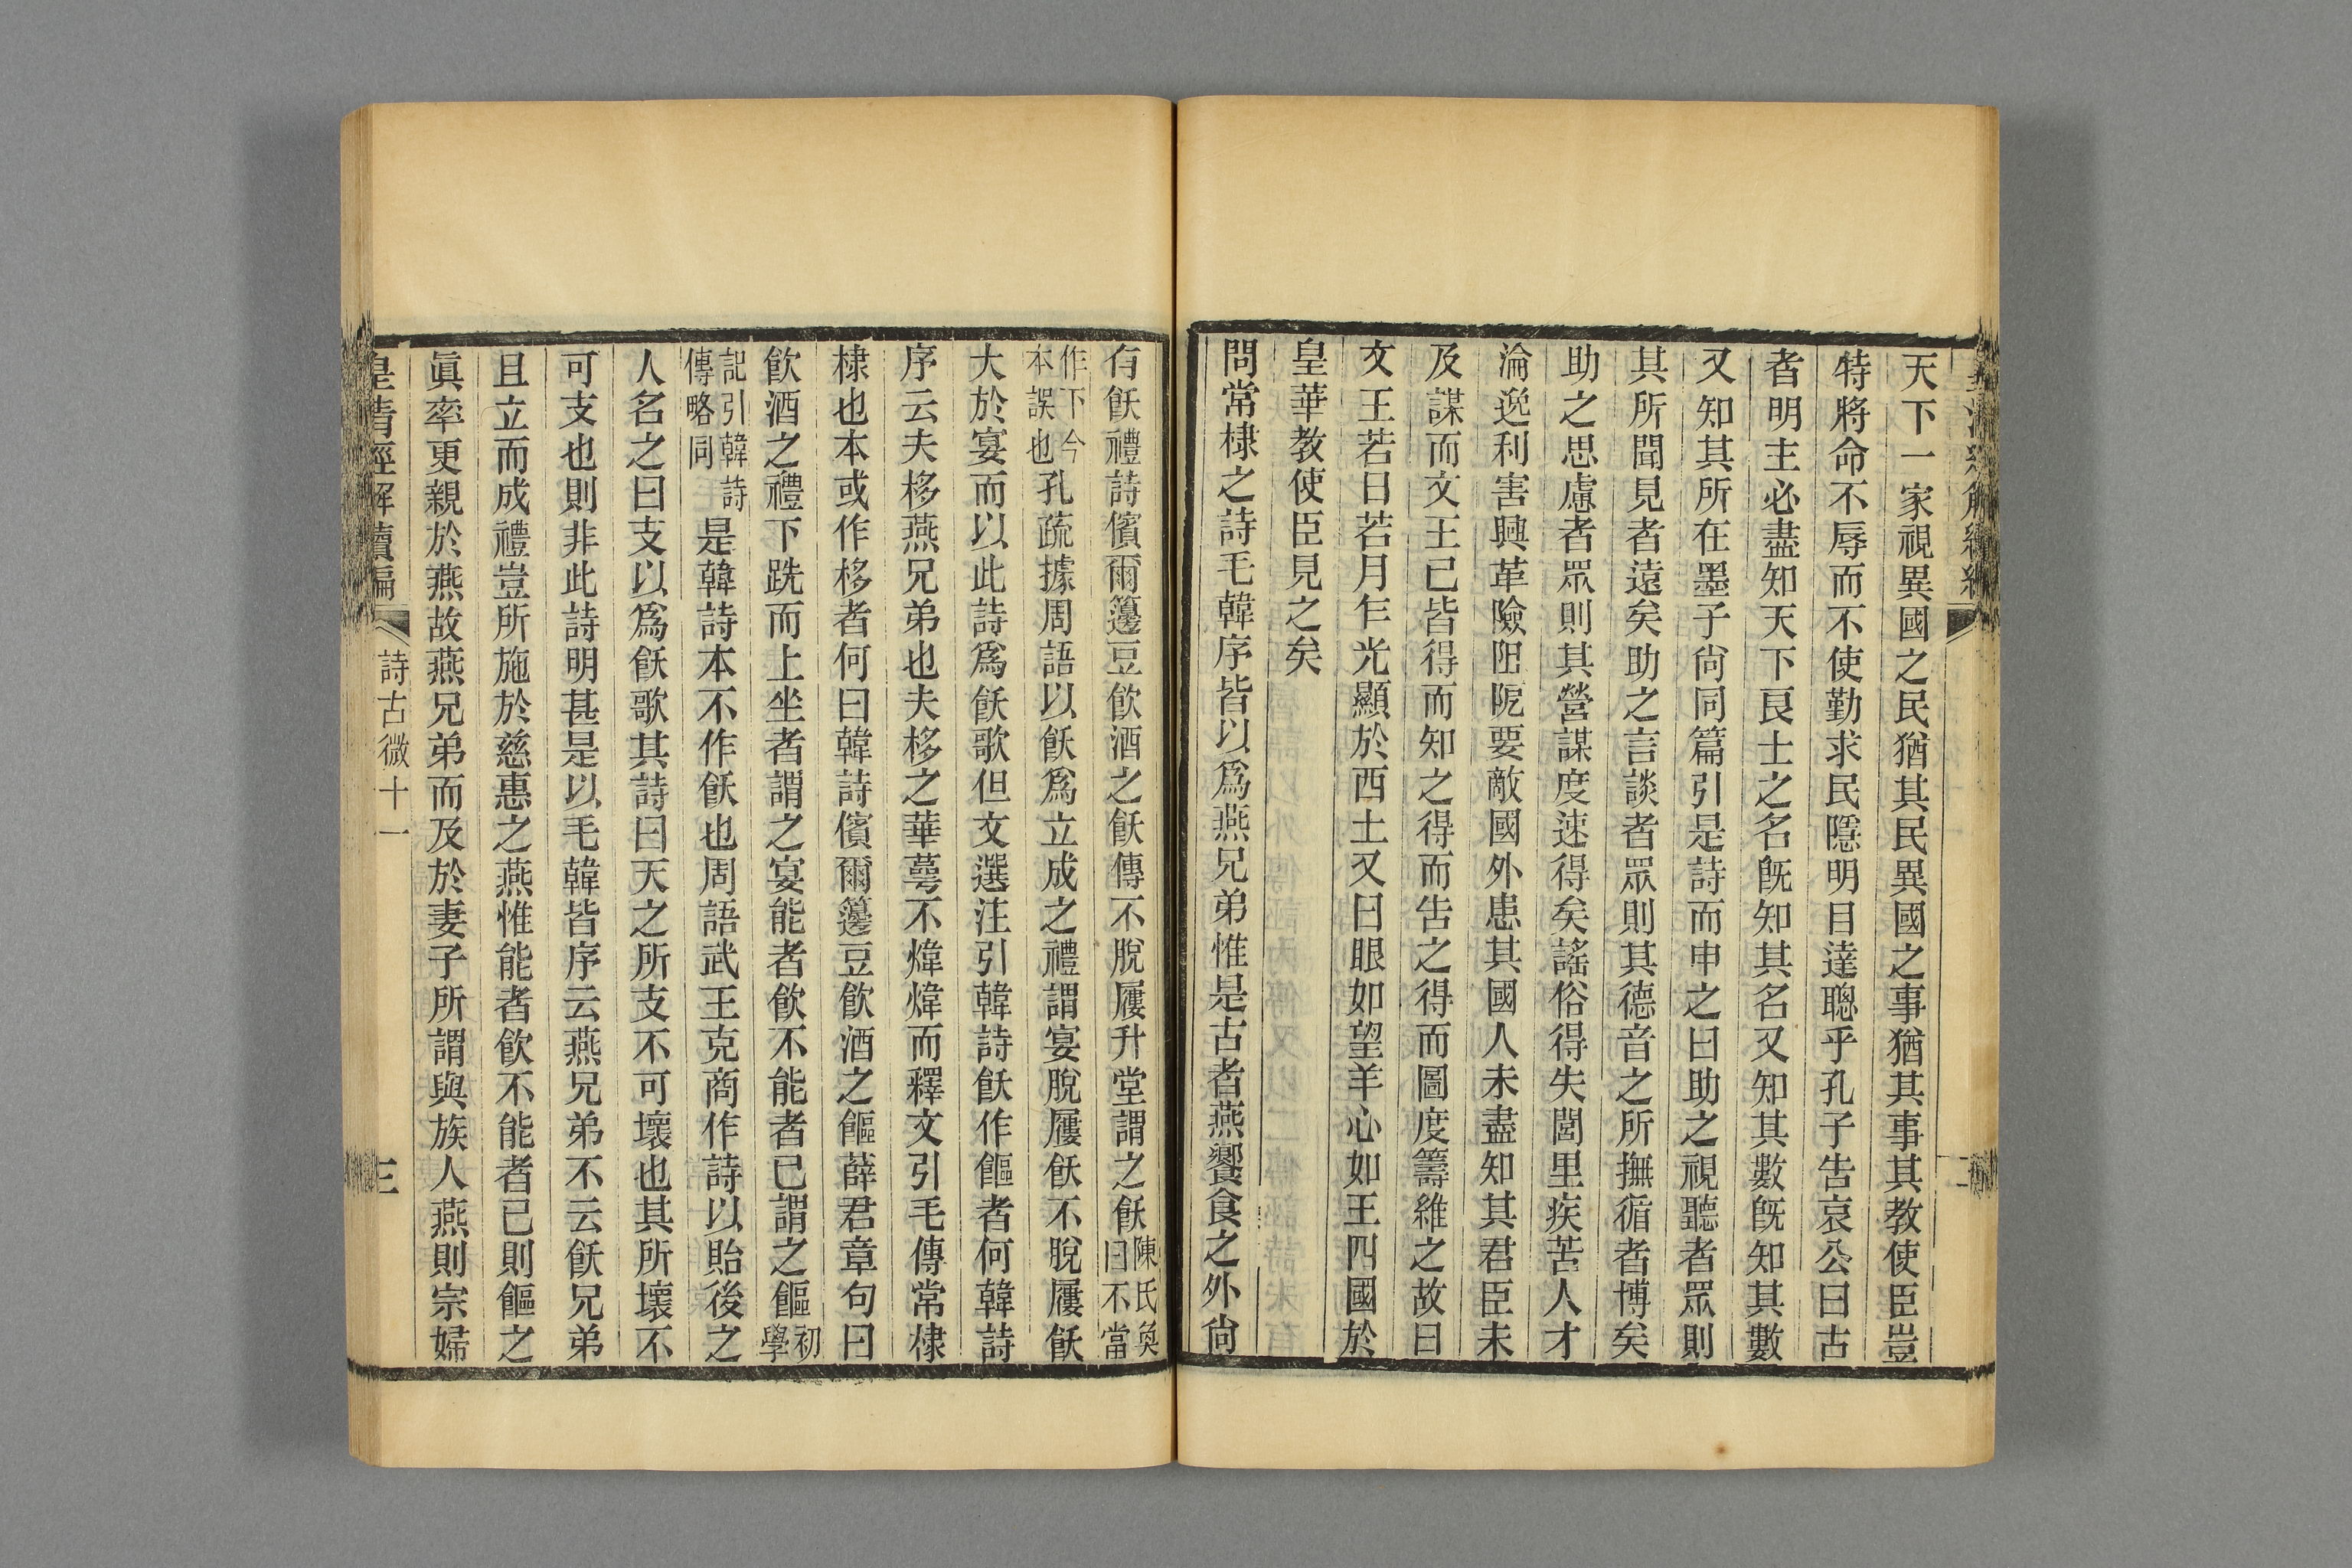 天下一家視異國之民猶其民異國之事猶其事其教使臣豈
特將命不辱而不使勤求民隱明目達聰乎孔子告哀公曰古
者明主必盡知天下良士之名旣知其名又知其數旣知其數
又知其所在墨子尙同篇引是詩而申之曰助之視聽者眾則
其所聞見者遠矣助之言談者眾則其德音之所撫循者博矣
助之思慮者眾則其營謀度速得矣謠俗得失閭里疾苦人才
淪逸利害興革險阻阨要敵國外患其國人未盡知其君臣未
及謀而文王已皆得而知之得而告之得而圖度籌維之故曰
文王若日若月乍光顯於西土又曰眼如望羊心如王四國於
皇華教使臣見之矣
問常棣之詩毛韓序皆以爲燕兄弟惟是古者燕饗食之外尙
有飫禮詩儐爾籩豆飲酒之飫傳不脫屨升堂謂之飫陳氏奐曰不當
作下今本誤也孔疏據周語以飫爲立成之禮謂宴脫屨飫不脫屨飫
大於宴而以此詩爲飫歌但文選注引韓詩飫作饇者何韓詩
序云夫栘燕兄弟也夫栘之華萼不煒煒而釋文引毛傳常棣
棣也本或作栘者何曰韓詩儐爾籩豆飲酒之饇薛君章句曰
飲酒之禮下跣而上坐者謂之宴能者飲不能者已謂之饇初學
記引韓詩傳略同是韓詩本不作飫也周語武王克商作詩以貽後之
人名之曰支以爲飫歌其詩曰天之所支不可壞也其所壞不
可支也則非此詩明甚是以毛韓皆序云燕兄弟不云飫兄弟
且立而成禮豈所施於慈惠之燕惟能者飲不能者已則饇之
眞率更親於燕故燕兄弟而及於妻子所謂與族人燕則宗婦
皇清經解續編
詩古微十一
三